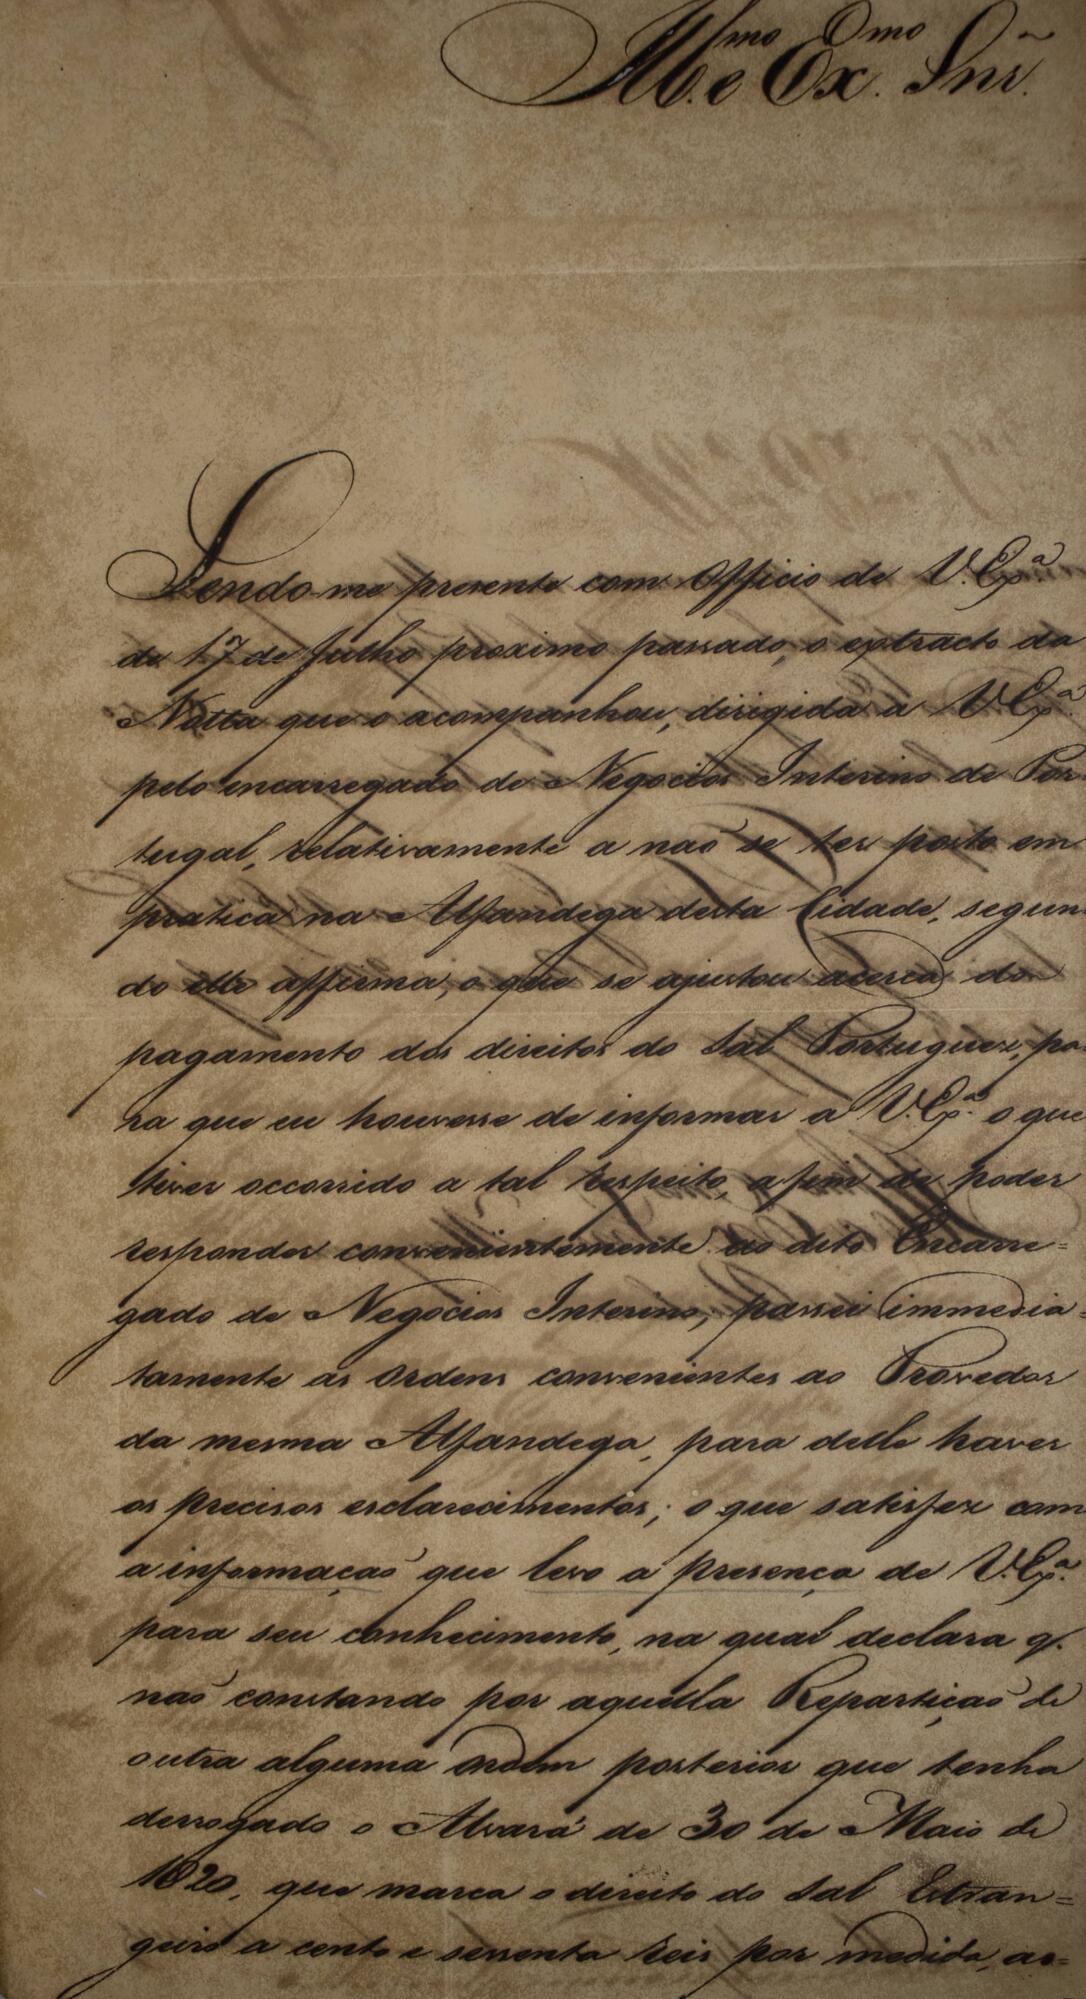 Ill.mo e Ex.mo Snr.
Sendo-me presente com Officio de V. Ex.ª
de 17 de Julho proximo passado, o extracto da
Notta que o acompanhou, dirigida a V. Ex.ª
pelo encarregado de Negocios Interino de Por-
tugal, relativamente a naõ se ter posto em
pratica na Alfandega desta Cidade, segun-
do elle affirma, o que se ajustou acerca do
pagamento dos direitos do Sal Portuguez, pa-
ra que eu houvesse de informar a V. Ex.ª o que
tiver occorrido a tal respeito, a fim de poder
responder convenientemente ao dito Encarre=
gado de Negocios Interino; passei immedia=
tamente as ordens convenientes ao Provedor
da mesma Alfandega, para delle haver
os precisos esclarecimentos; o que satisfez com
a informaçaõ que levo a presença de V. Ex.ª
para seu conhecimento, na qual declara q.
naõ constando por aquella Repartiçaõ de
outra alguma ordem posterior que tenha
derrogado o Alvará de 30 de Maio de
1820, que marca o direito do Sal Estran=
geiro a cento e sessenta reis por medida, as=